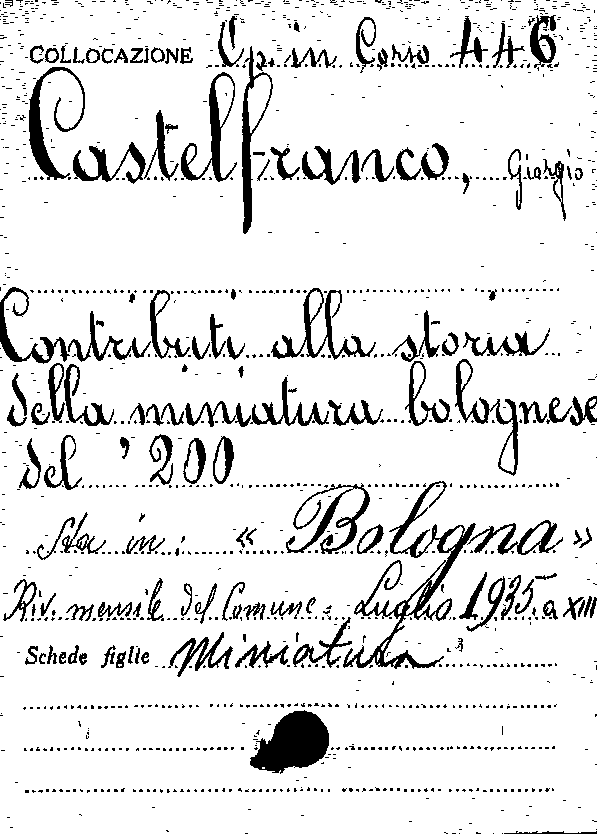 COLLOCAZIONE Op. in Corso 446
Castelfranco, Giorgio
Contributi alla storia
della miniatura bolognese
del '200
Sta in: « Bologna »
Riv. mensile del Comune - Luglio 1935. a XIII
Schede figlie Miniatura